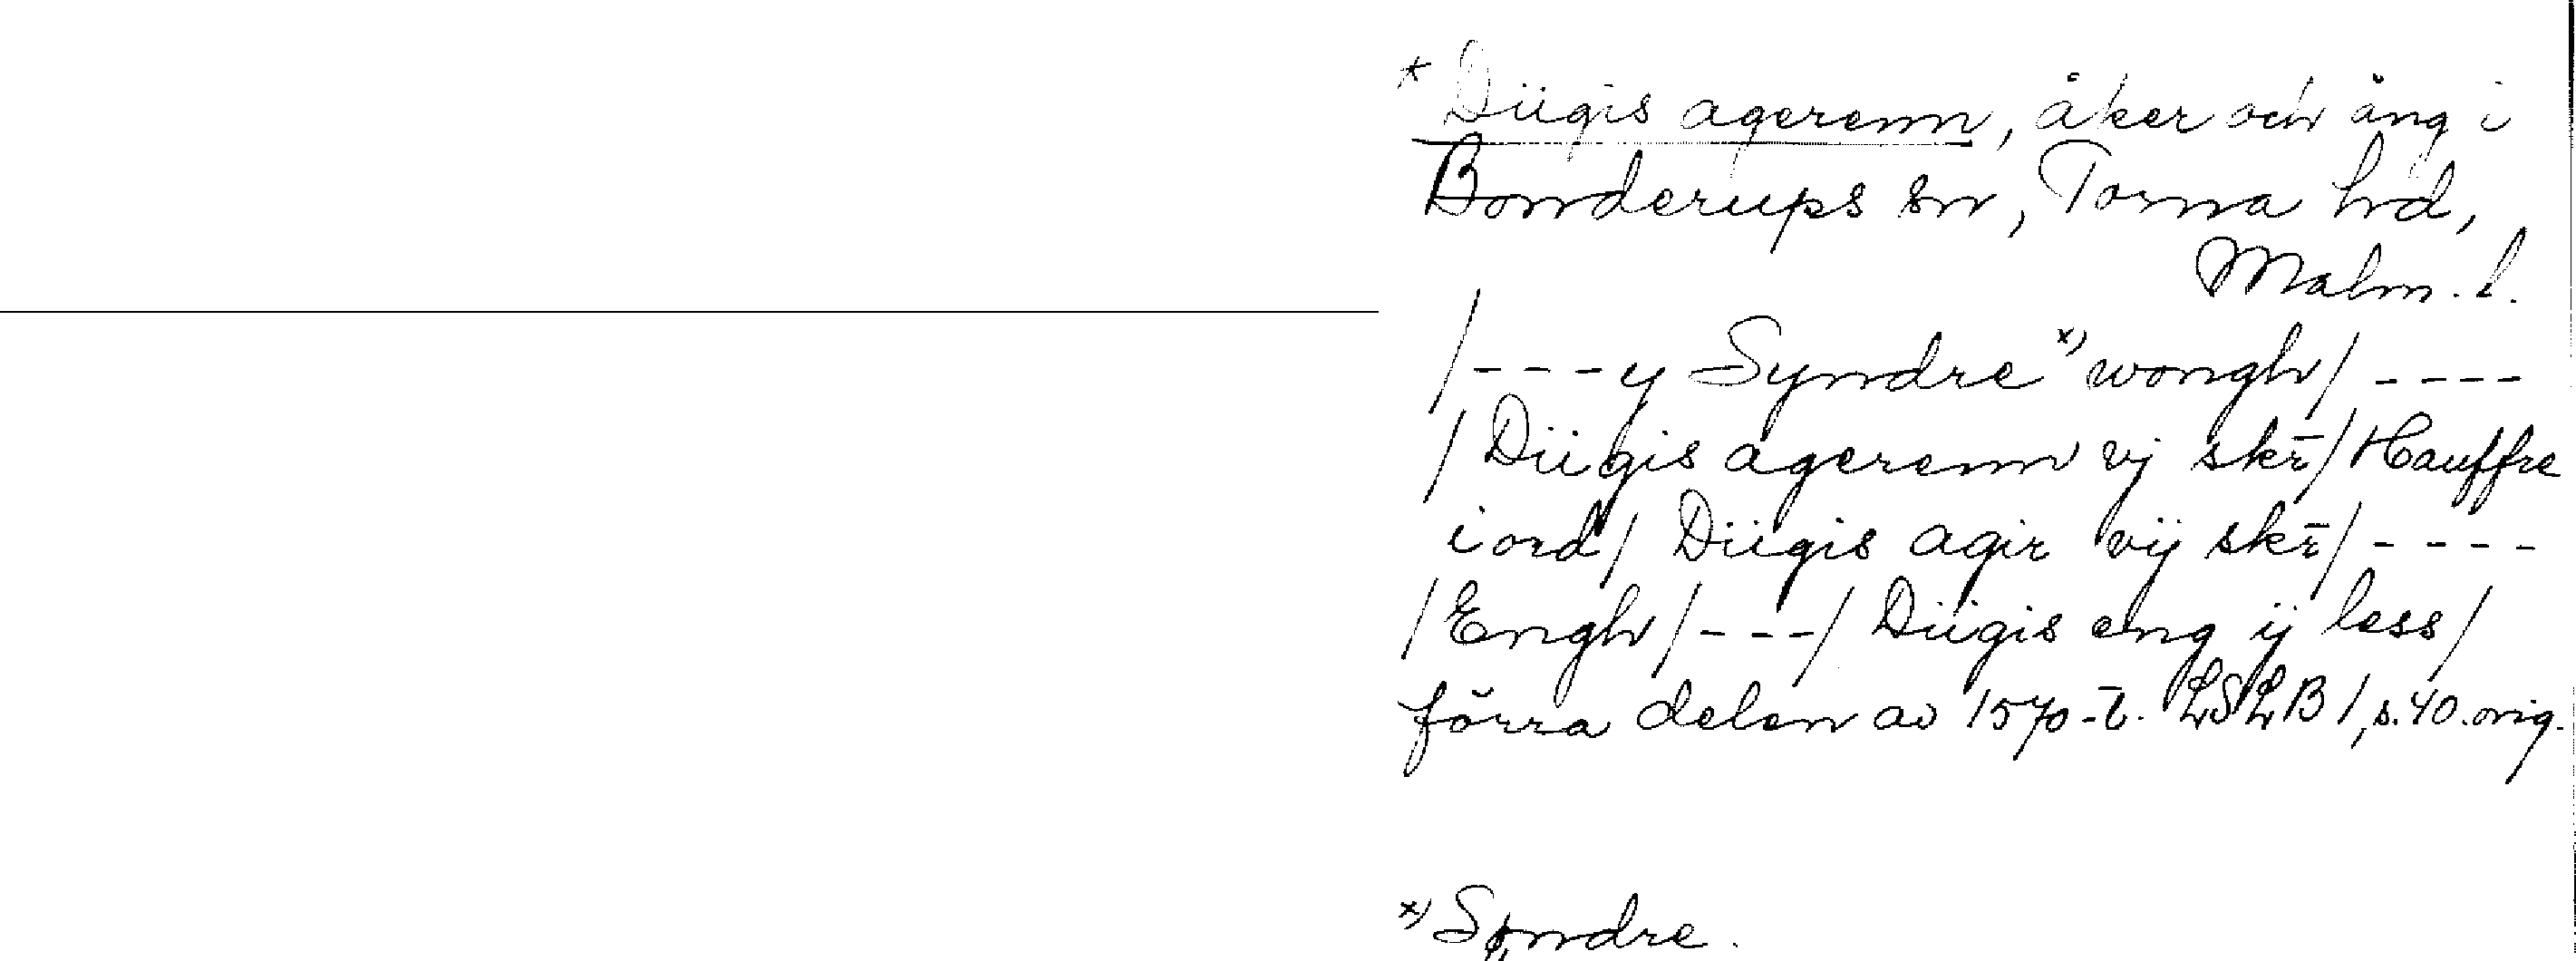 * Diigis agerenn, åker och äng i
Bonderups sn, Torna hd,
Malm. l.
/---y Syndre x) wongh/ ----
/Diigis agerenn vj skr̄/ Hauffre
iord/ Diigis agir vij skr̄/----
/Engh/---/ Diigis eng ij less/
förra delen av 1570-t. LSLB 1, s. 40. orig.
x) Søndre.